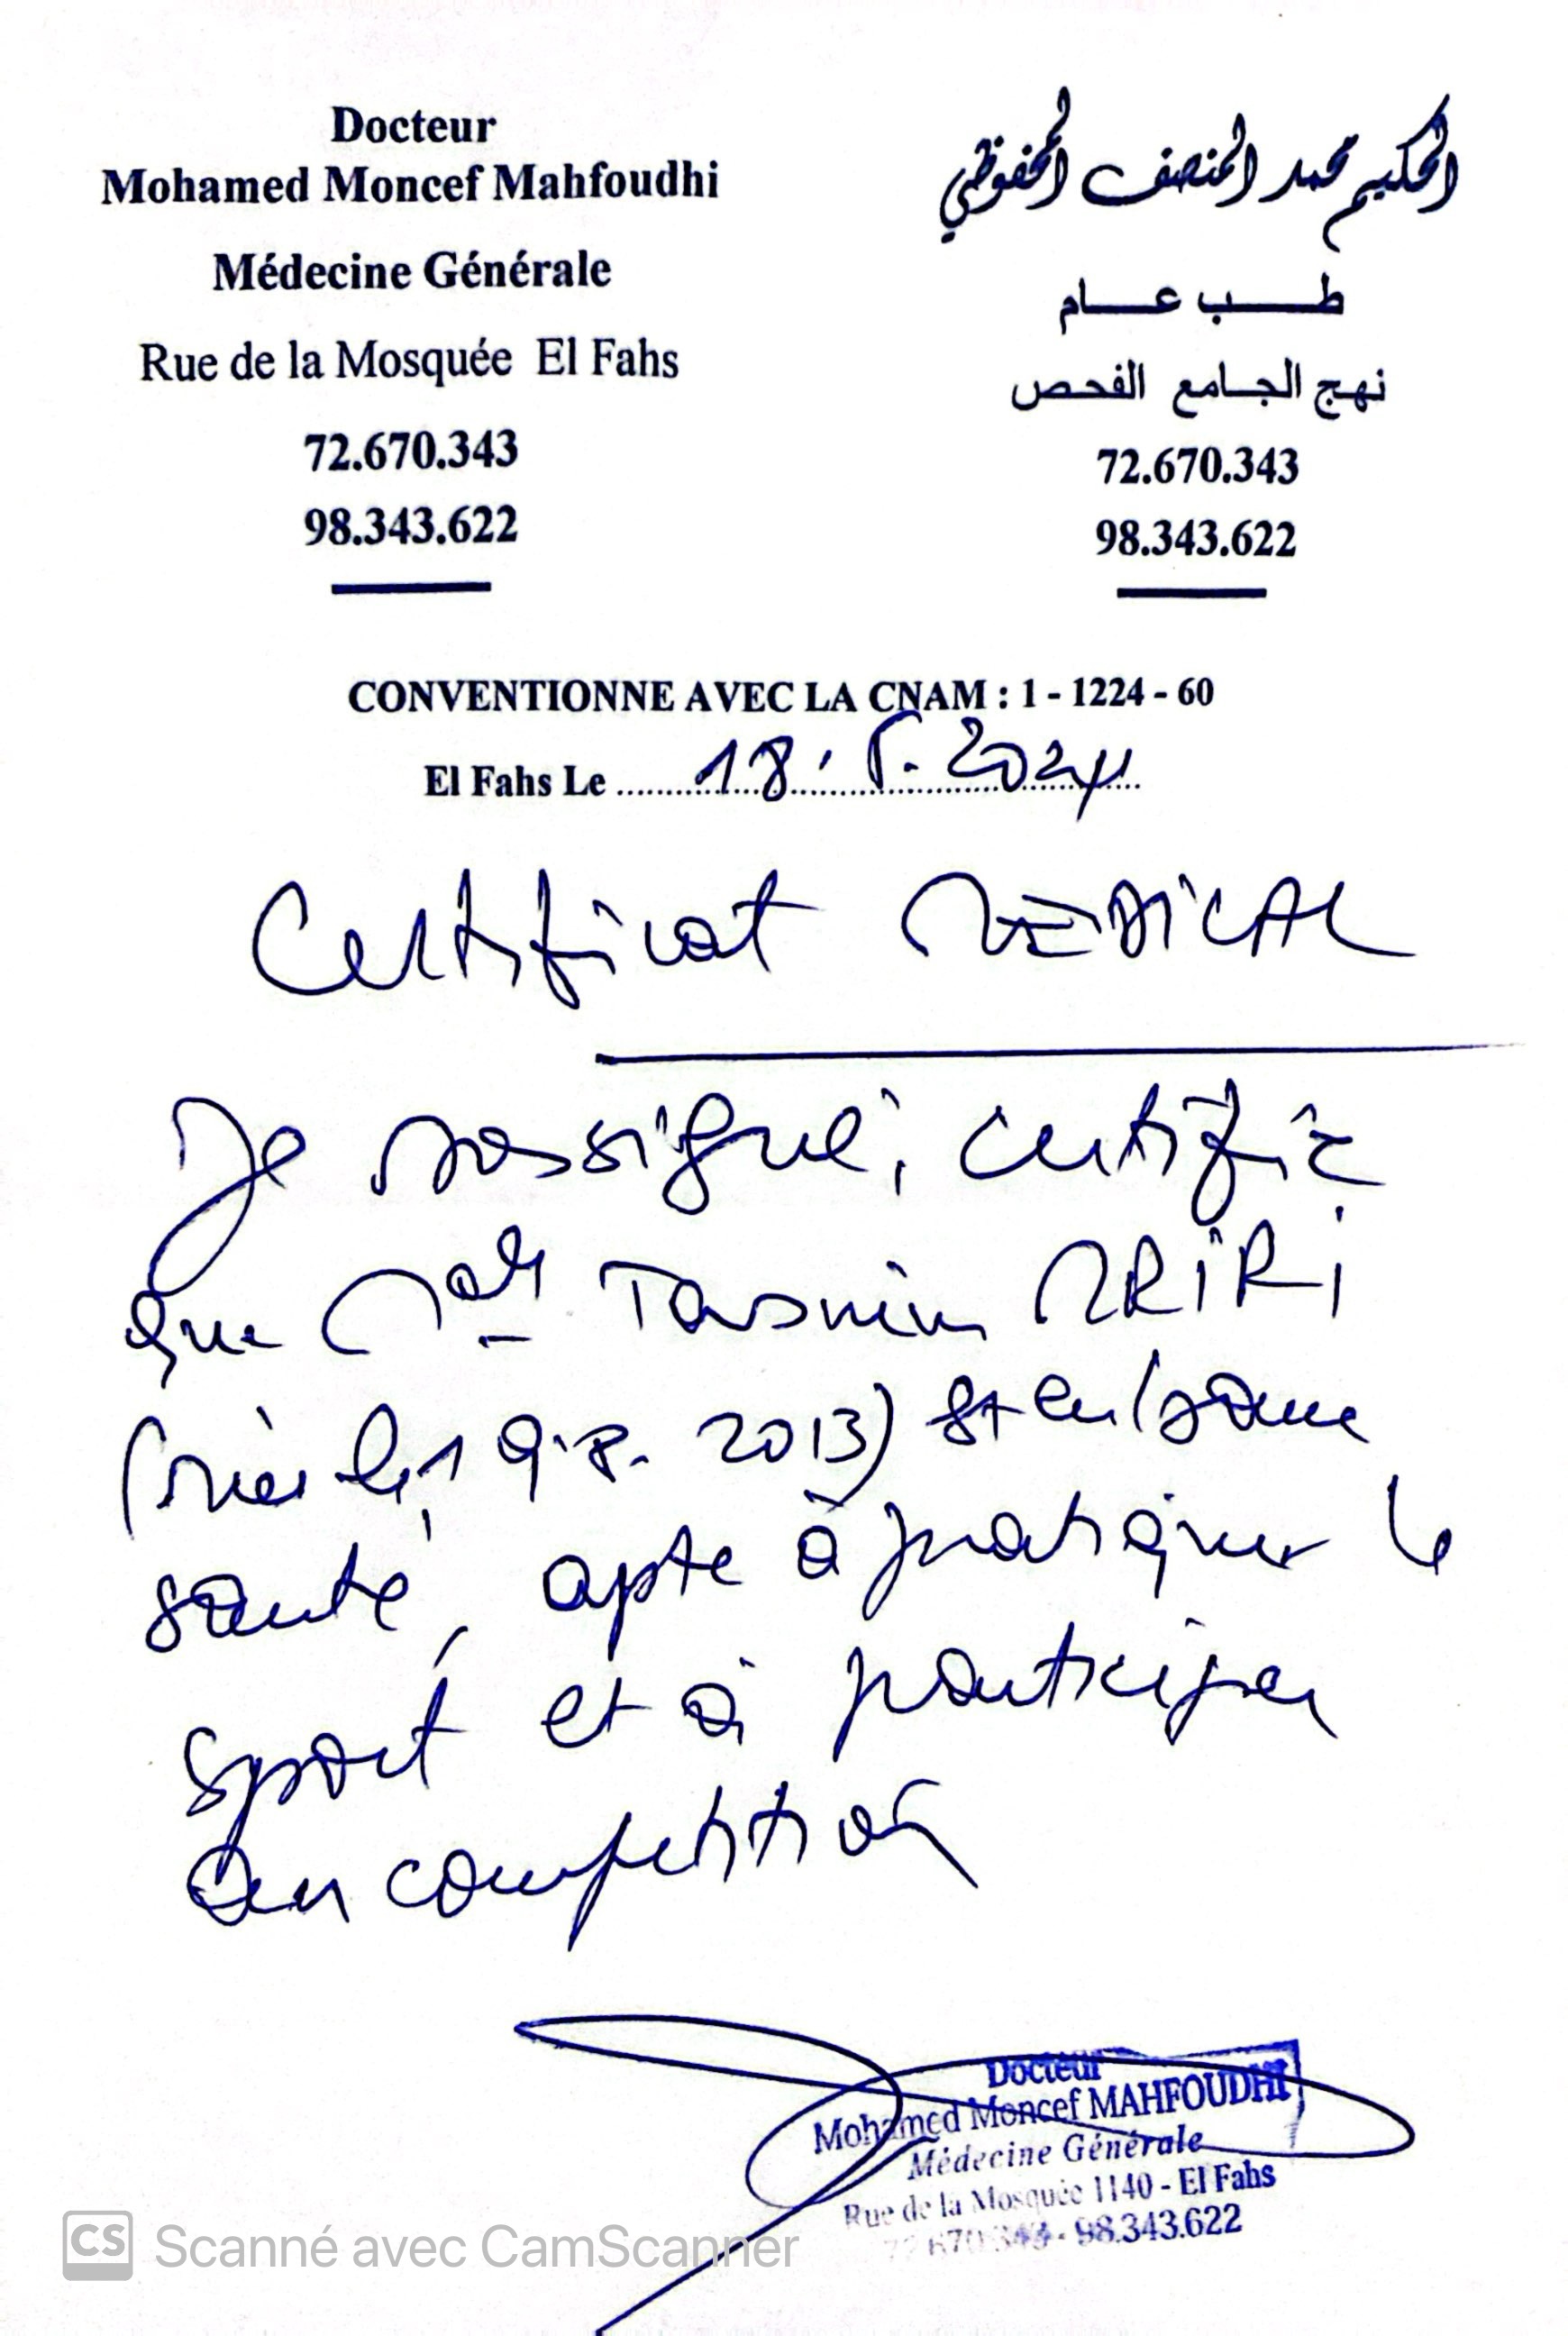 Docteur
Mohamed Moncef Mahfoudhi
Médecine Générale
Rue de la Mosquée El Fahs
72.670.343
98.343.622
الحكيم محمد المنصف المحفوظي
طب عام
نهج الجامع الفحص
72.670.343
98.343.622
CONVENTIONNE AVEC LA CNAM : 1 - 1224 - 60
El Fahs Le 18. 2024
Certificat MEDICAL
Je sossigné, certifie
que Tasnim
(née le 19.8. 2013) est en bonne
santé, apte à pratiquer le
sport et à participer
en competition
Docteur
Mohamed Moncef MAHFOUDHI
Médecine Générale
Rue de la Mosquée 1140 - El Fahs
72.670.343 - 98.343.622
CS Scanné avec CamScanner